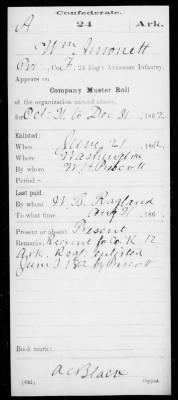 Confederate.
A 24 Ark.
Wm Simonett
Pvt, Co. F, 24 Reg't Arkansas Infantry.
Appears on
Company Muster Roll
of the organization named above,
for Oct. 31 to Dec 31, 1862.
Enlisted:
When June 21, 1862.
Where Washington
By whom W. H. Prescott
Period
Last paid:
By whom W. B. Ragland
To what time Aug 31, 186
Present or absent Present
Remarks: Recruit for Co. K 12
Ark. Regt. enlisted
June 21 62 by Prescott
Book mark:
(642) Copyist.